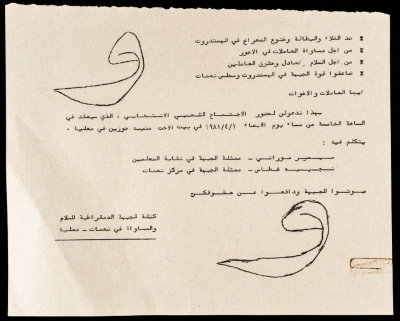 و
× ضد الغلاء والبطالة وخنوع المعراخ في الهستدروت
× من اجل مساواة العاملات في الاجور
× من اجل السلام العادل وحقوق العاملين
× ضاعفوا قوة الجبهة في الهستدروت ومجلس نعمات
ايها العاملات والاخوات
بهذا ندعوكن لحضور الاجتماع الشعبي الانتخابي ، الذي سيعقد في
الساعة الخامسة من مساء يوم الاربعاء ١٩٨١/٤/١ في بيت الاخت منيبة جوزين في معليا .
يتكلم فيه :
سمير موراني - ممثلة الجبهة في نقابة المعلمين
نجيبه غطاس - ممثلة الجبهة في مركز نعمات
صوتوا للجبهة ودافعوا عن حقوقكن
و
كتلة الجبهة الدمقراطية للسلام
والمساواة في نعمات - معليا